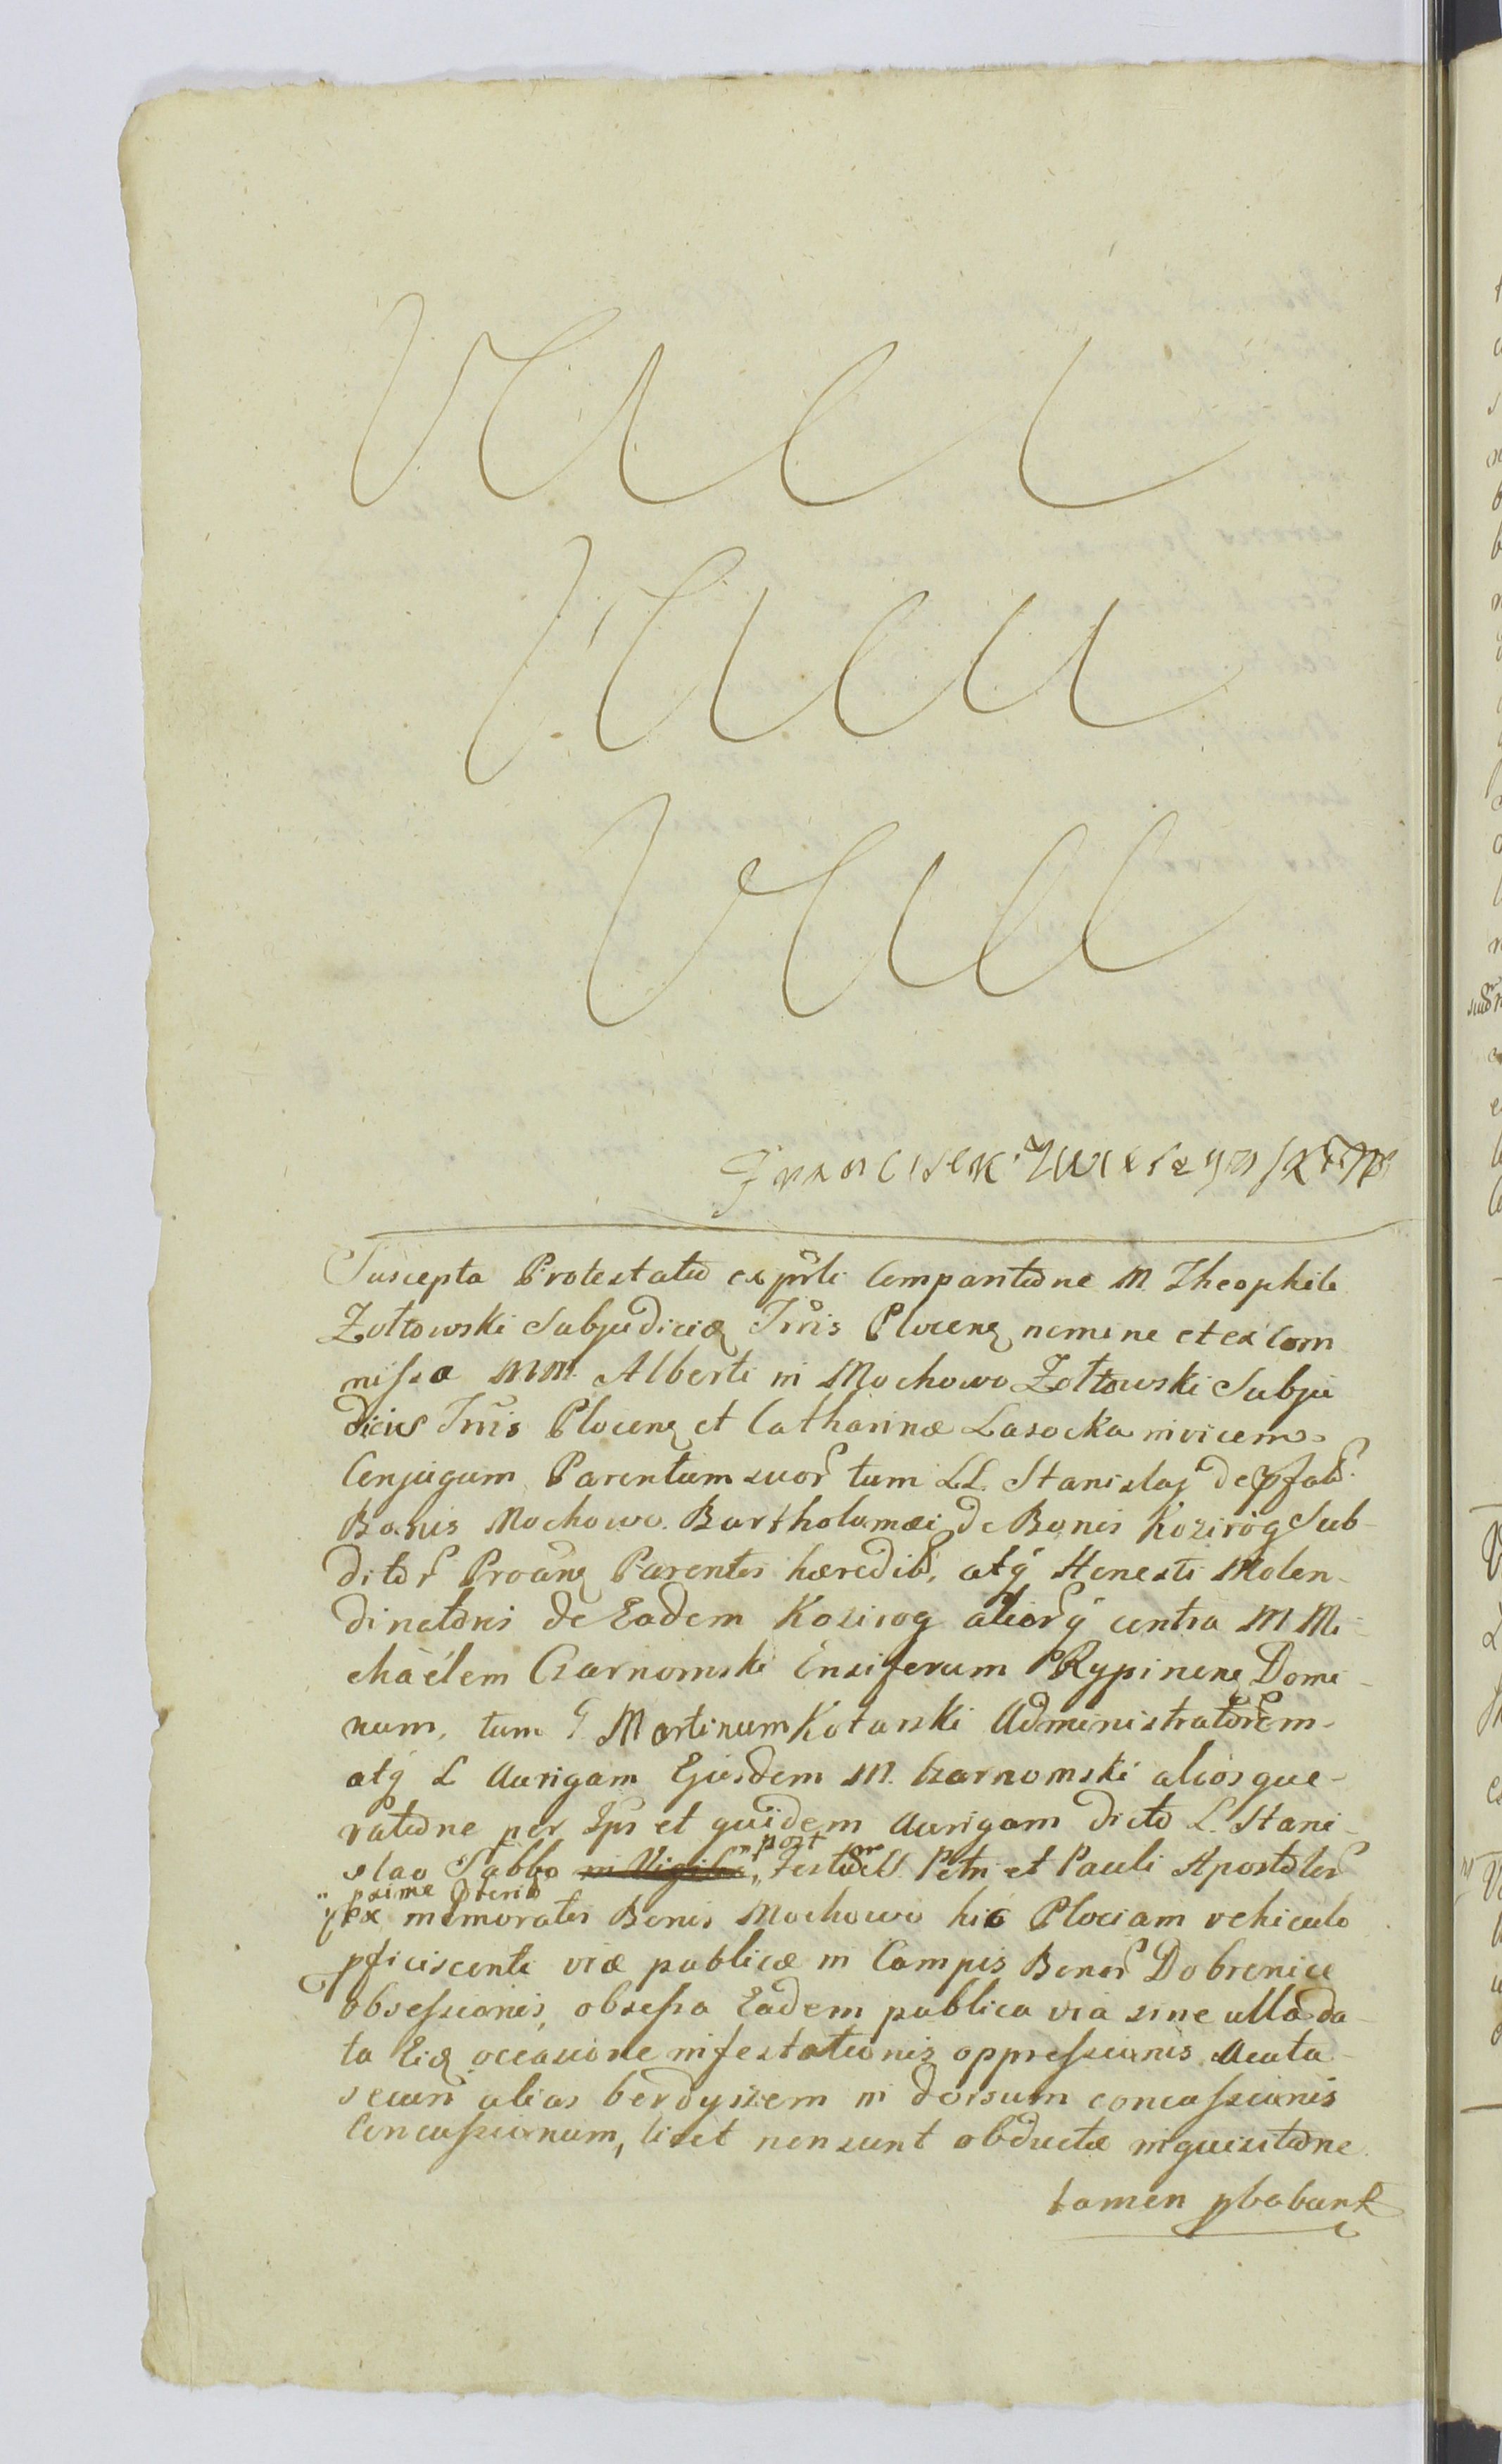 Franciscek Zwierzyński mp
Suscepta Protestatio ex prsli Comparitione M. Theophili
Zołtowski Subjudicidæ Trris Plocens nomine et ex Com
missa MM. Alberti in Mochowo Zołtowski Subju
dicis Trris Plocens et Catharinæ Lasocka invicem
Conjugum Parentum suor tum LL. Stanislaj de pfatis
Bonis Mochowo. Bartholomæi de Bonis Kozirog Sub-
ditor Proans Parentis hæredib, atq Honesti Molen-
dinatoris de Eadem Kozirog alior q contra M Mi-
chaëlem Czarnomski Ensiferum Rypinens Domi-
num, tum G Martinum Kotarski Administratorem
atq L Aurigam Ejusdem M. Czarnomski alios que
ratione per Ips et quidem Aurigam dicto L. Stani-
slao Sabbo in Vigilia, post Festum SS. Petri et Pauli Apostolor
" pxime Prerito
ex memoratis Bonis Mochowo hic Plociam vehiculo
pficiscenti viæ publicæ in Campis Bonor Dobrenice
obsessionis, obsessa Eadem publica via sine ulla da-
ta Eis occasione infestationis oppressionis Acuta
securi alias berdyszem in dorsum concussionis
Concussionum, licet non sunt obductæ inquisitione
tamen pbabunt